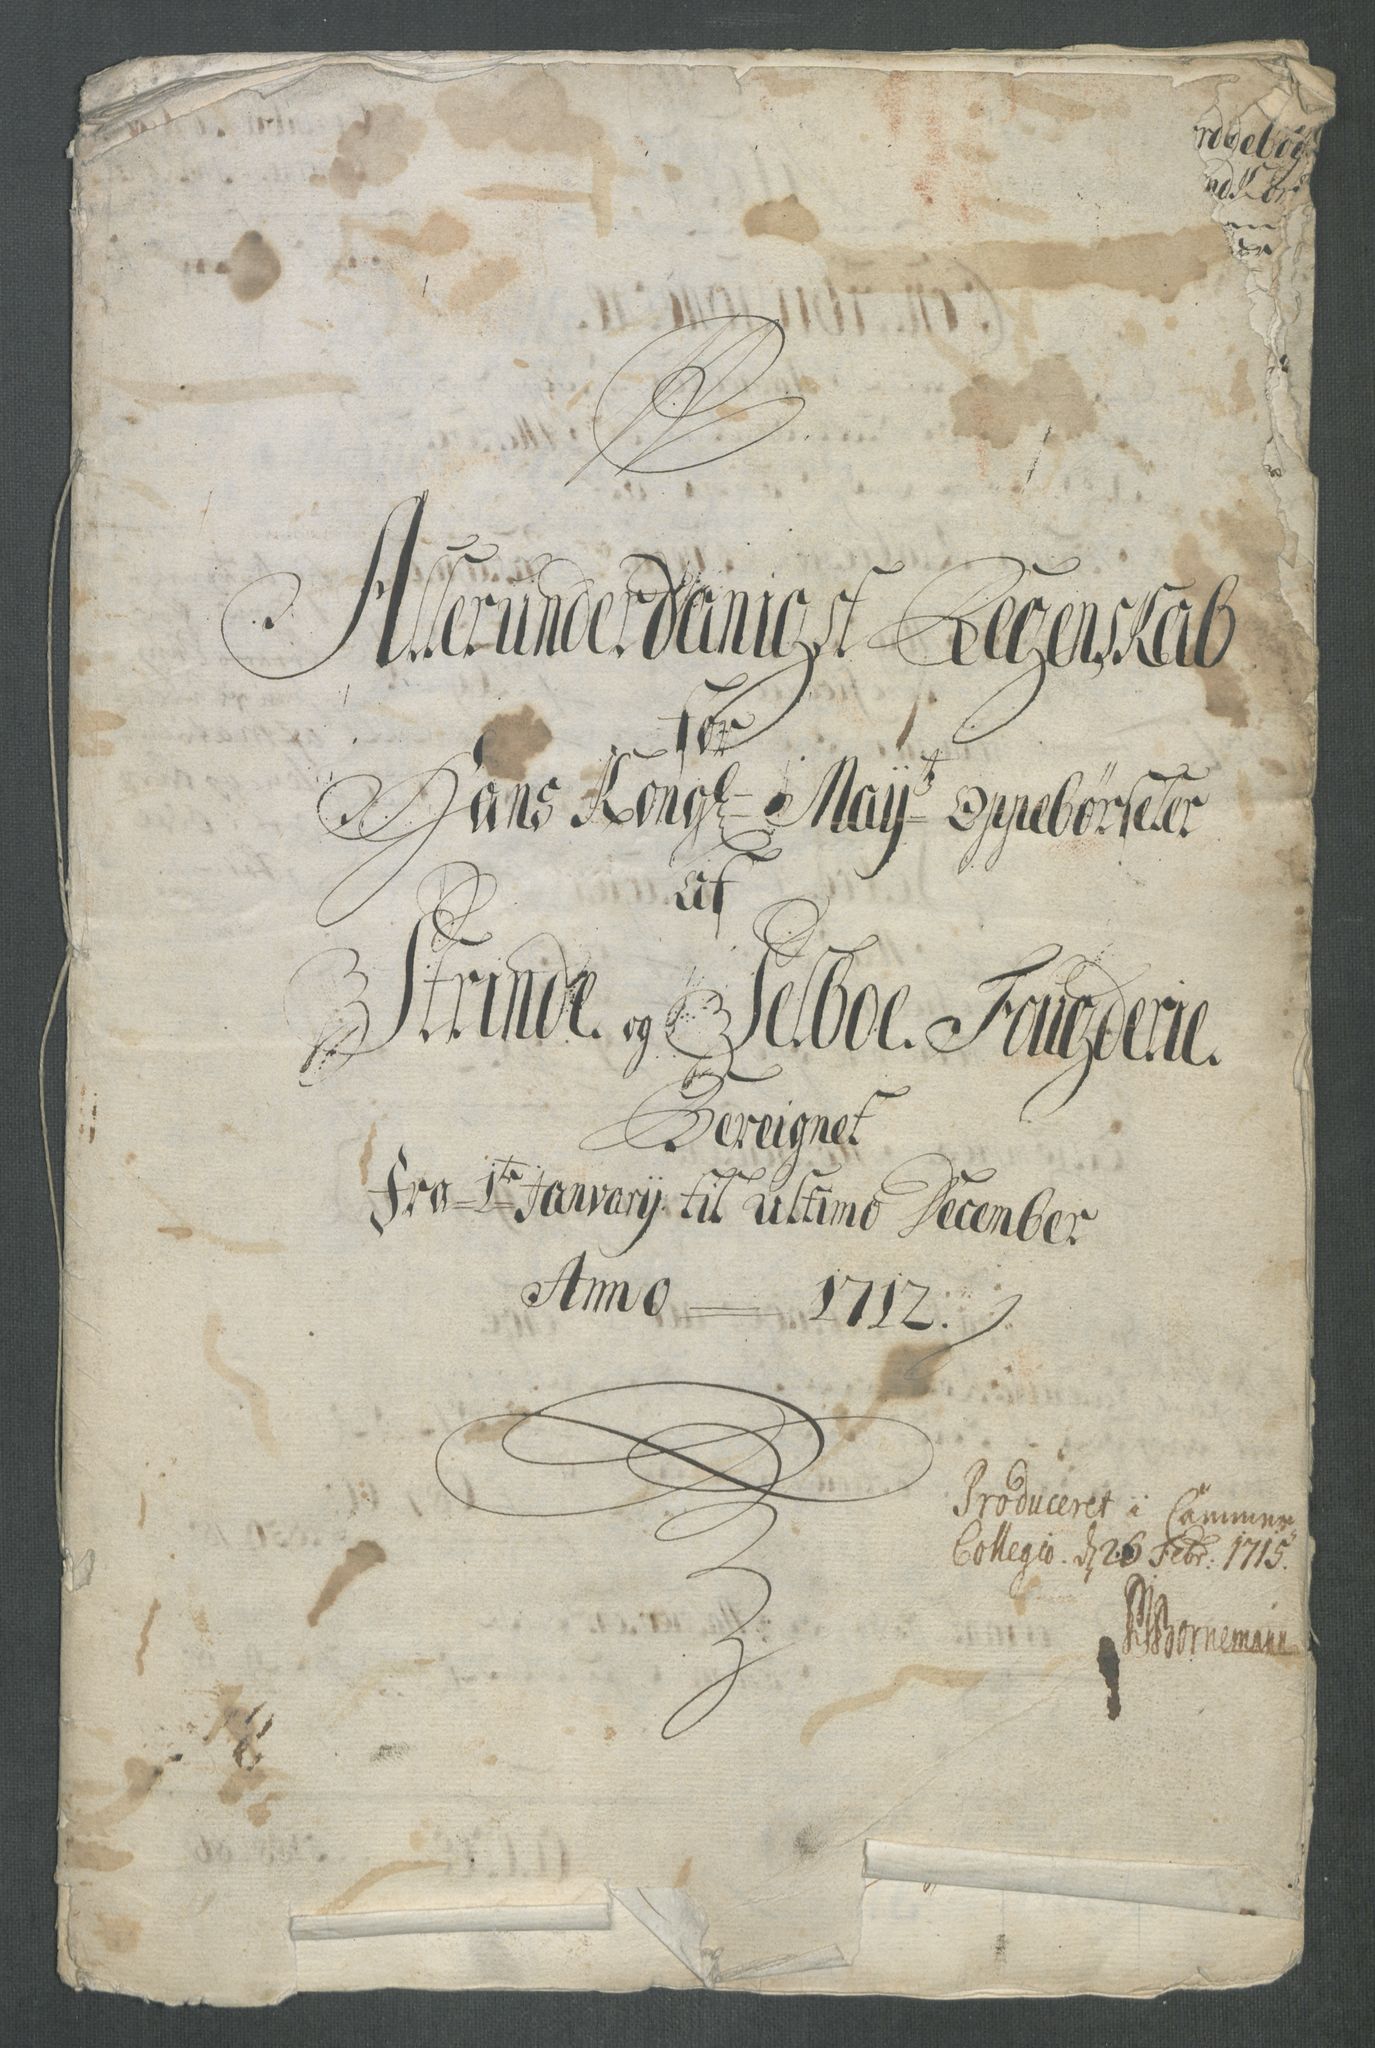 Allerunderdanigst Regenskab
for
Hans Kongl- Mayts Oppebørseler
af
Strinde og Selboe Fougderie.
Bereignet
Fra 1te Janvarij til ultimo December
Anno 1712.
Produceret i Cammer
Collegio. d 26 Febr: 1715.
Bornemann